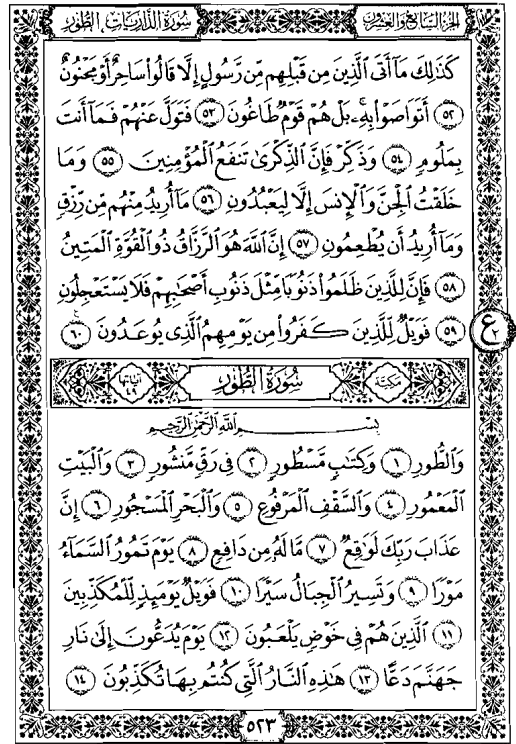 الجزء السابع والعشرون
سورة الذاريات، الطور
كَذَٰلِكَ مَآ أَتَى ٱلَّذِينَ مِن قَبْلِهِم مِّن رَّسُولٍ إِلَّا قَالُوا۟ سَاحِرٌ أَوْ مَجْنُونٌ
٥٢ أَتَوَاصَوْا۟ بِهِۦ بَلْ هُمْ قَوْمٌ طَاغُونَ ٥٣ فَتَوَلَّ عَنْهُمْ فَمَآ أَنتَ
بِمَلُومٍ ٥٤ وَذَكِّرْ فَإِنَّ ٱلذِّكْرَىٰ تَنفَعُ ٱلْمُؤْمِنِينَ ٥٥ وَمَا
خَلَقْتُ ٱلْجِنَّ وَٱلْإِنسَ إِلَّا لِيَعْبُدُونِ ٥٦ مَآ أُرِيدُ مِنْهُم مِّن رِّزْقٍ
وَمَآ أُرِيدُ أَن يُطْعِمُونِ ٥٧ إِنَّ ٱللَّهَ هُوَ ٱلرَّزَّاقُ ذُو ٱلْقُوَّةِ ٱلْمَتِينُ
٥٨ فَإِنَّ لِلَّذِينَ ظَلَمُوا۟ ذَنُوبًا مِّثْلَ ذَنُوبِ أَصْحَٰبِهِمْ فَلَا يَسْتَعْجِلُونِ
٥٩ فَوَيْلٌ لِّلَّذِينَ كَفَرُوا۟ مِن يَوْمِهِمُ ٱلَّذِى يُوعَدُونَ ٦٠
ع ٢
مكيّة
سُورَةُ الطُّورِ
آياتها ٤٩
بِسْمِ ٱللَّهِ ٱلرَّحْمَٰنِ ٱلرَّحِيمِ
وَٱلطُّورِ ١ وَكِتَٰبٍ مَّسْطُورٍ ٢ فِى رَقٍّ مَّنشُورٍ ٣ وَٱلْبَيْتِ
ٱلْمَعْمُورِ ٤ وَٱلسَّقْفِ ٱلْمَرْفُوعِ ٥ وَٱلْبَحْرِ ٱلْمَسْجُورِ ٦ إِنَّ
عَذَابَ رَبِّكَ لَوَٰقِعٌ ٧ مَّا لَهُۥ مِن دَافِعٍ ٨ يَوْمَ تَمُورُ ٱلسَّمَآءُ
مَوْرًا ٩ وَتَسِيرُ ٱلْجِبَالُ سَيْرًا ١٠ فَوَيْلٌ يَوْمَئِذٍ لِّلْمُكَذِّبِينَ
١١ ٱلَّذِينَ هُمْ فِى خَوْضٍ يَلْعَبُونَ ١٢ يَوْمَ يُدَعُّونَ إِلَىٰ نَارِ
جَهَنَّمَ دَعًّا ١٣ هَٰذِهِ ٱلنَّارُ ٱلَّتِى كُنتُم بِهَا تُكَذِّبُونَ ١٤
٥٢٣